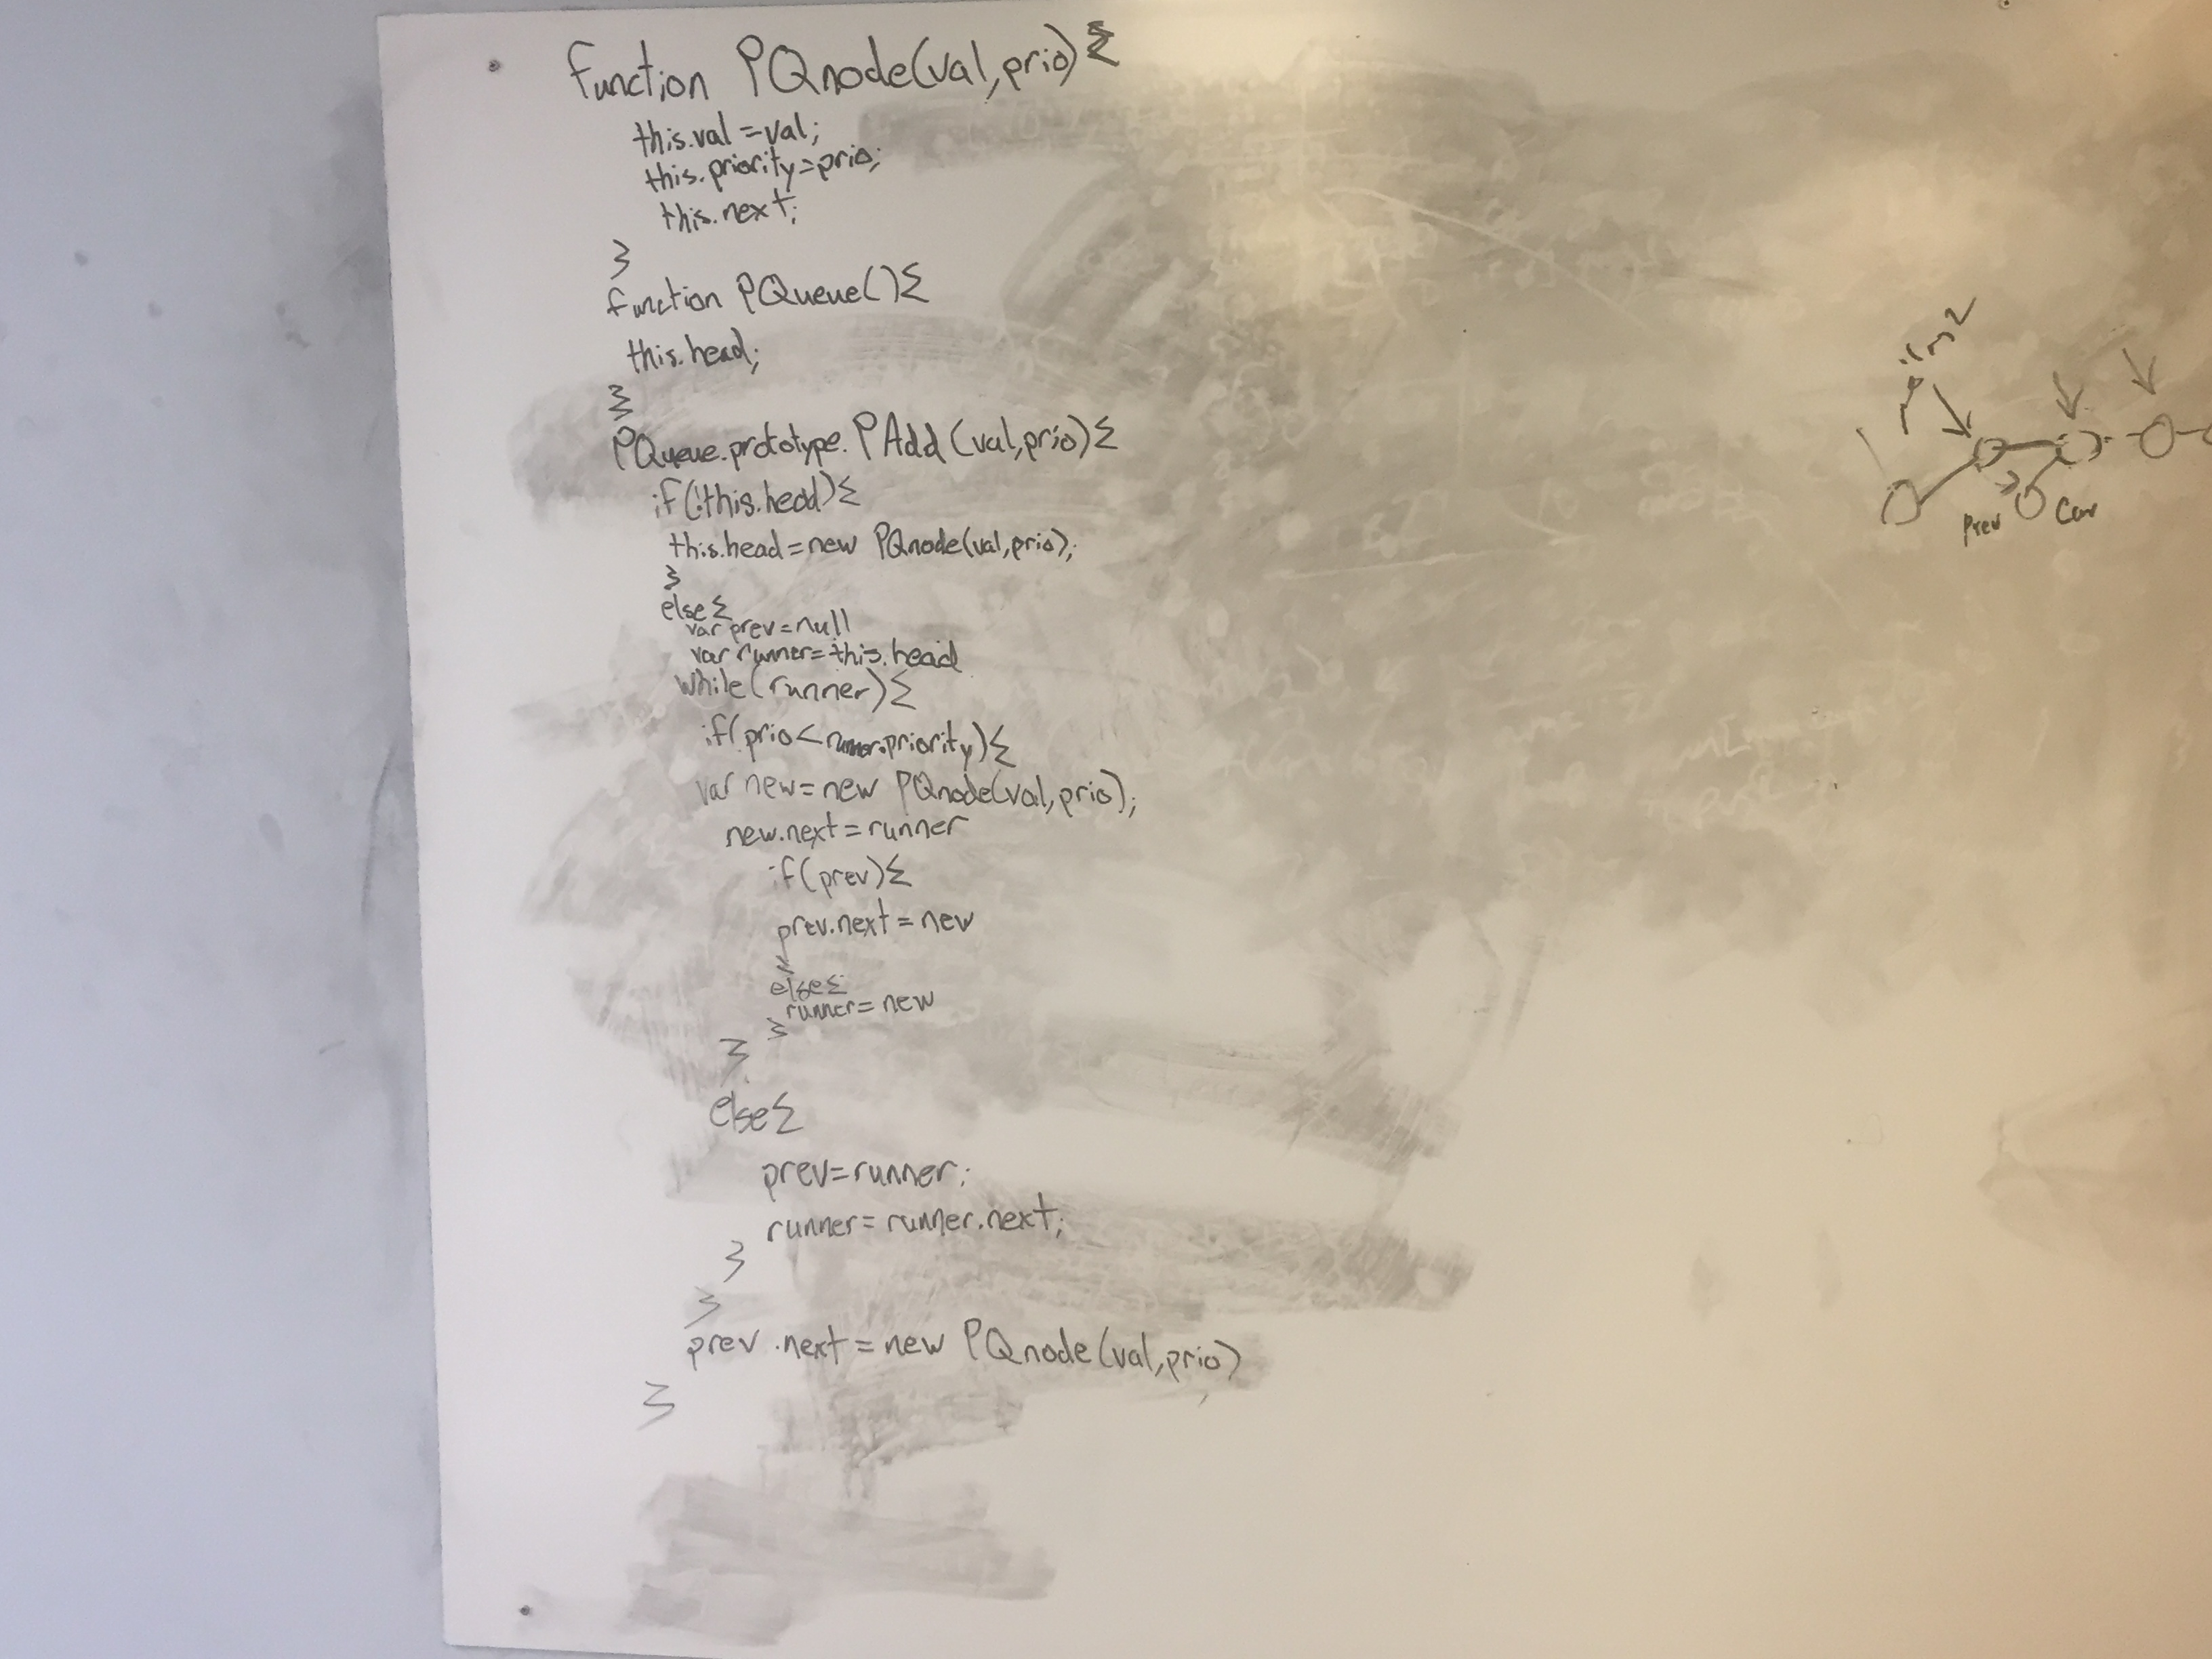 function PQnode(val,prio){
this.val=val;
this.priority=prio;
this.next;
}
function PQueue(){
this.head;
}
PQueue.prototype.PAdd(val,prio){
if(!this.head){
this.head=new PQnode(val,prio);
}
else{
var prev=null
var runner=this.head
while(runner){
if(prio<runner.priority){
var new=new PQnode(val,prio);
new.next=runner
if(prev){
prev.next=new
}
else{
runner=new
}
}
else{
prev=runner;
runner=runner.next;
}
}
prev.next=new PQnode(val,prio)
}
Prev